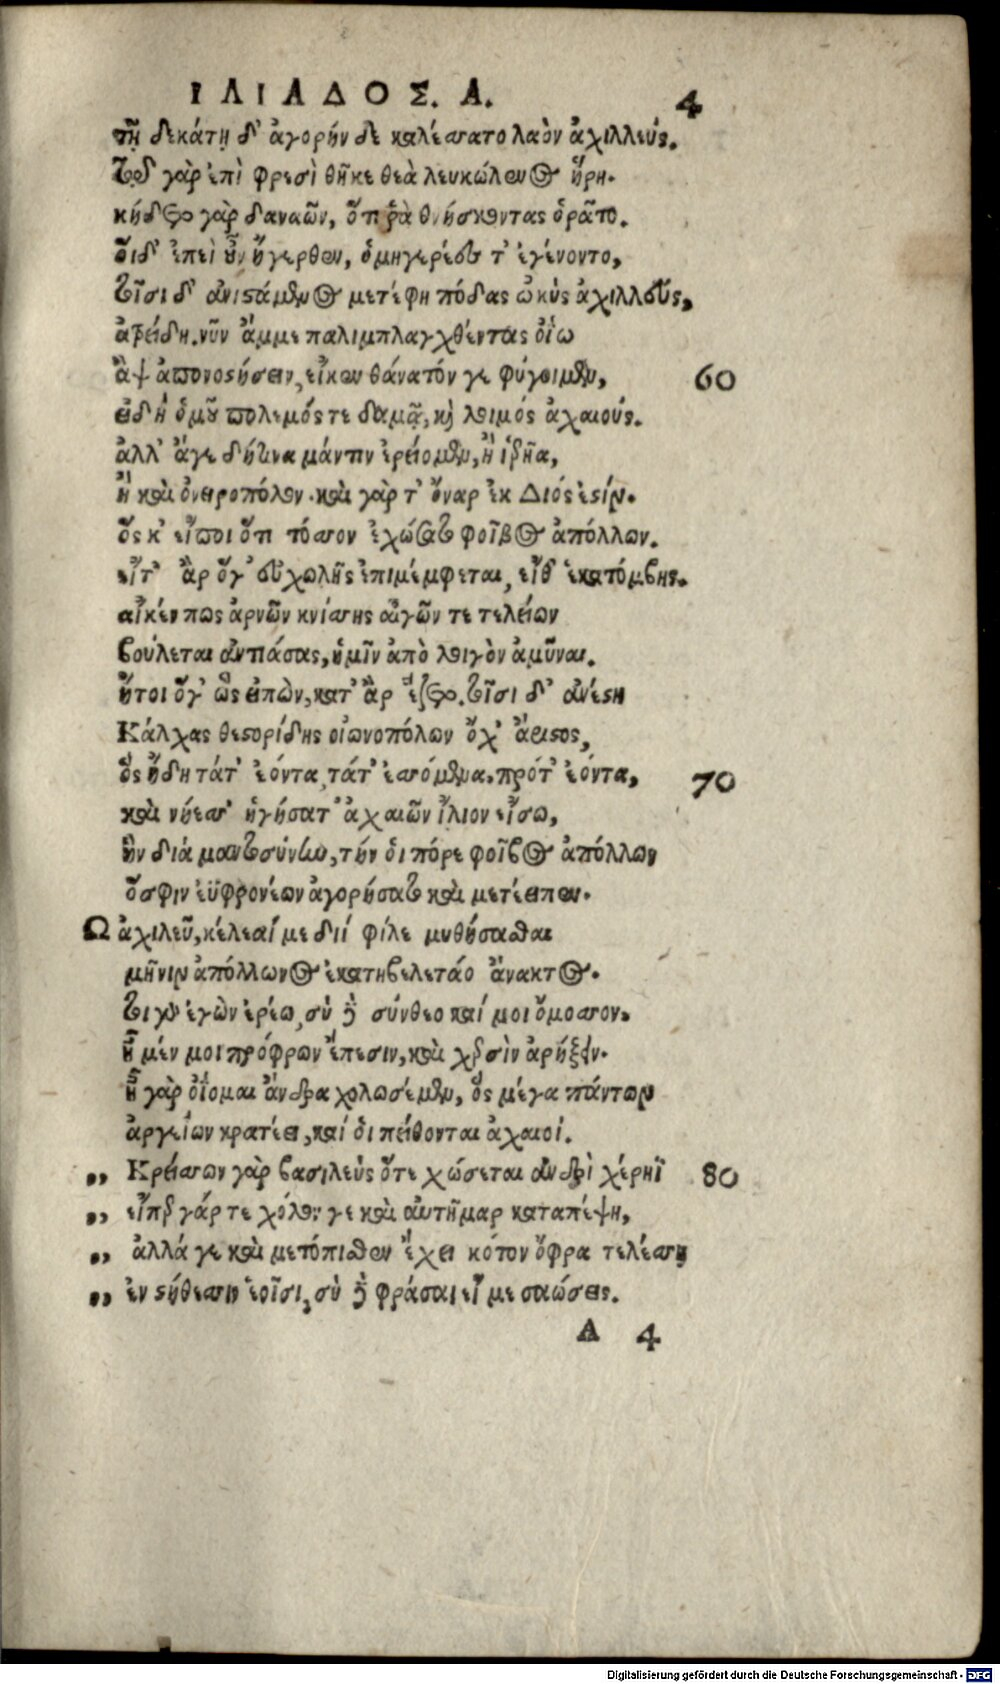 ΙΛΙΑΔΟΣ. Α. 4
τῇ δεκάτῃ δ' ἀγορήν δε καλέσσατο λαὸν ἀχιλλεύς.
τῷ γὰρ ἐπὶ φρεσὶ θῆκε θεὰ λευκώλενος ἥρη.
κήδετο γὰρ δαναῶν, ὅτι ῥὰ θνήσκοντας ὁρᾶτο.
οἵδ' ἐπεὶ οὖν ἤγερθεν, ὁμηγερέες τ' ἐγένοντο,
τοῖσι δ' ἀνιστάμενος μετέφη πόδας ὠκὺς ἀχιλλεύς,
ἀτρείδη. νῦν ἄμμε παλιμπλαγχθέντας ὀΐω
ἂψ ἀπονοστήσειν, εἴκεν θάνατόν γε φύγοιμεν, 60
εἰδὴ ὁμοῦ πολεμός τε δαμᾷ, καὶ λοιμός ἀχαιούς.
ἀλλ' ἄγε δήτινα μάντιν ἐρείομεν, ἢ ἱρῆα,
ἢ καὶ ὀνειροπόλον. καὶ γὰρ τ' ὄναρ ἐκ Διός ἐστίν.
ὅς κ' εἴποι ὅτι τόσσον ἐχώσατο φοῖβος ἀπόλλων.
εἴτ' ἂρ ὅγ' εὐχωλῆς ἐπιμέμφεται, εἴθ' ἑκατόμβης.
αἴκέν πως ἀρνῶν κνίσσης αἰγῶν τε τελείων
βούλεται ἀντιάσας, ἡμῖν ἀπὸ λοιγὸν ἀμῦναι.
ἤτοι ὅγ' ὣς εἰπὼν, κατ' ἂρ ἕζετο. τοῖσι δ' ἀνέστη
Κάλχας θεστορίδης οἰωνοπόλων ὄχ' ἄριστος,
ὃς ᾔδη τάτ' ἐόντα, τάτ' ἐσσόμενα, πρότ' ἐόντα, 70
καὶ νήεσσ' ἡγήσατ' ἀχαιῶν ἴλιον εἴσω,
ἣν διὰ μαντοσύνην, τήν ὁι πόρε φοῖβος ἀπόλλων
ὅσφιν ἐϋφρονέων ἀγορήσατο καὶ μετέειπεν.
Ω ἀχιλεῦ, κέλεαί με διί φίλε μυθήσασθαι
μῆνιν ἀπόλλωνος ἑκατηβελετάο ἄνακτος.
τοιγὰρ ἐγὼν ἐρέω, σὺ δὲ σύνθεο καί μοι ὄμοσσον.
ἦ μέν μοι πρόφρων ἔπεσιν, καὶ χερσὶν ἀρήξειν.
ἦ γὰρ ὀΐομαι ἄνδρα χολωσέμεν, ὃς μέγα πάντων
ἀργείων κρατέει, καί ὁι πείθονται ἀχαιοί.
,, Κρείσσων γὰρ βασιλεὺς ὅτε χώσεται ἀνδρὶ χέρηϊ 80
,, εἴπερ γάρ τε χόλον γε καὶ αὐτῆμαρ καταπέψῃ,
,, ἀλλά γε καὶ μετόπισθεν ἔχει κότον ὄφρα τελέσσῃ
,, ἐν στήθεσσιν ἑοῖσι, σὺ δὲ φράσαι εἴ με σαώσεις.
A 4
Digitalisierung gefördert durch die Deutsche Forschungsgemeinschaft - DFG